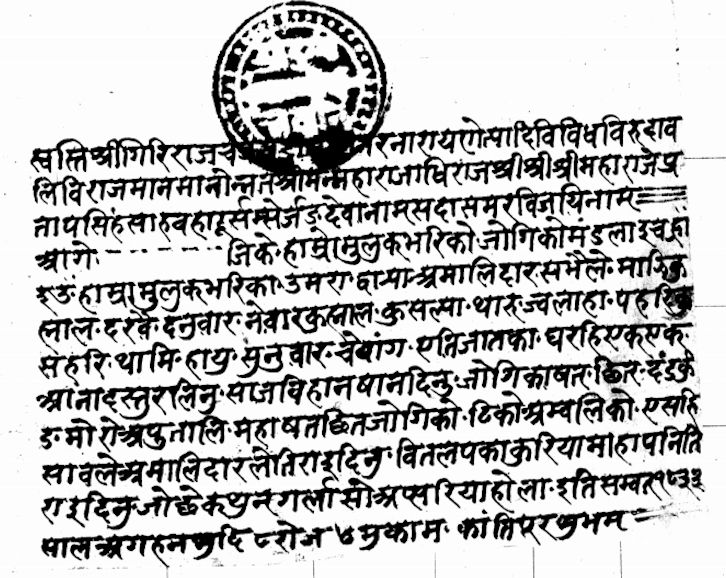 स्वस्ति श्रीगिरिराजच नरनारायणेत्यादिविविधविरुदाव
लिविराजमानमानोन्नतश्रीमन्महाराजाधिराजश्रीश्रीश्रीमहाराजप्र
तापसिंहसाहवहादूर्सम्सेर्जङ्देवानाम् सदासमरविजयिनाम्
आगे जिके हाम्रा मुलुकभरिको जोगिको मंडलाइ
हाम्रा मुलुकभरिका उमरा द्वाऱ्या अमालिदार सभैले माझि
लाल दरवै दनुवार नेवार कुसल्या थारु ज्वलाहा पहरि
संहरि थामि हायु सुनुवार चेपांग एति जातका घरहि एक एक
आना दस्तुर लिनु साज विहान षान दिनु जोगिका षत छित दंड
मोरो अपुतालि महाषत छित जोगिको टिको अम्वलिको
सावले अमालिदारले तिराइदिनु वितलपका कुरियामाहा पनि ति
राइदिनु जो छेकथुन गर्ला सो अपऱ्हरिया होला इति सम्वत १८३३
साल अगहन शुदि ८ रोज ५ मुकाम कांतिपुर शुभम्